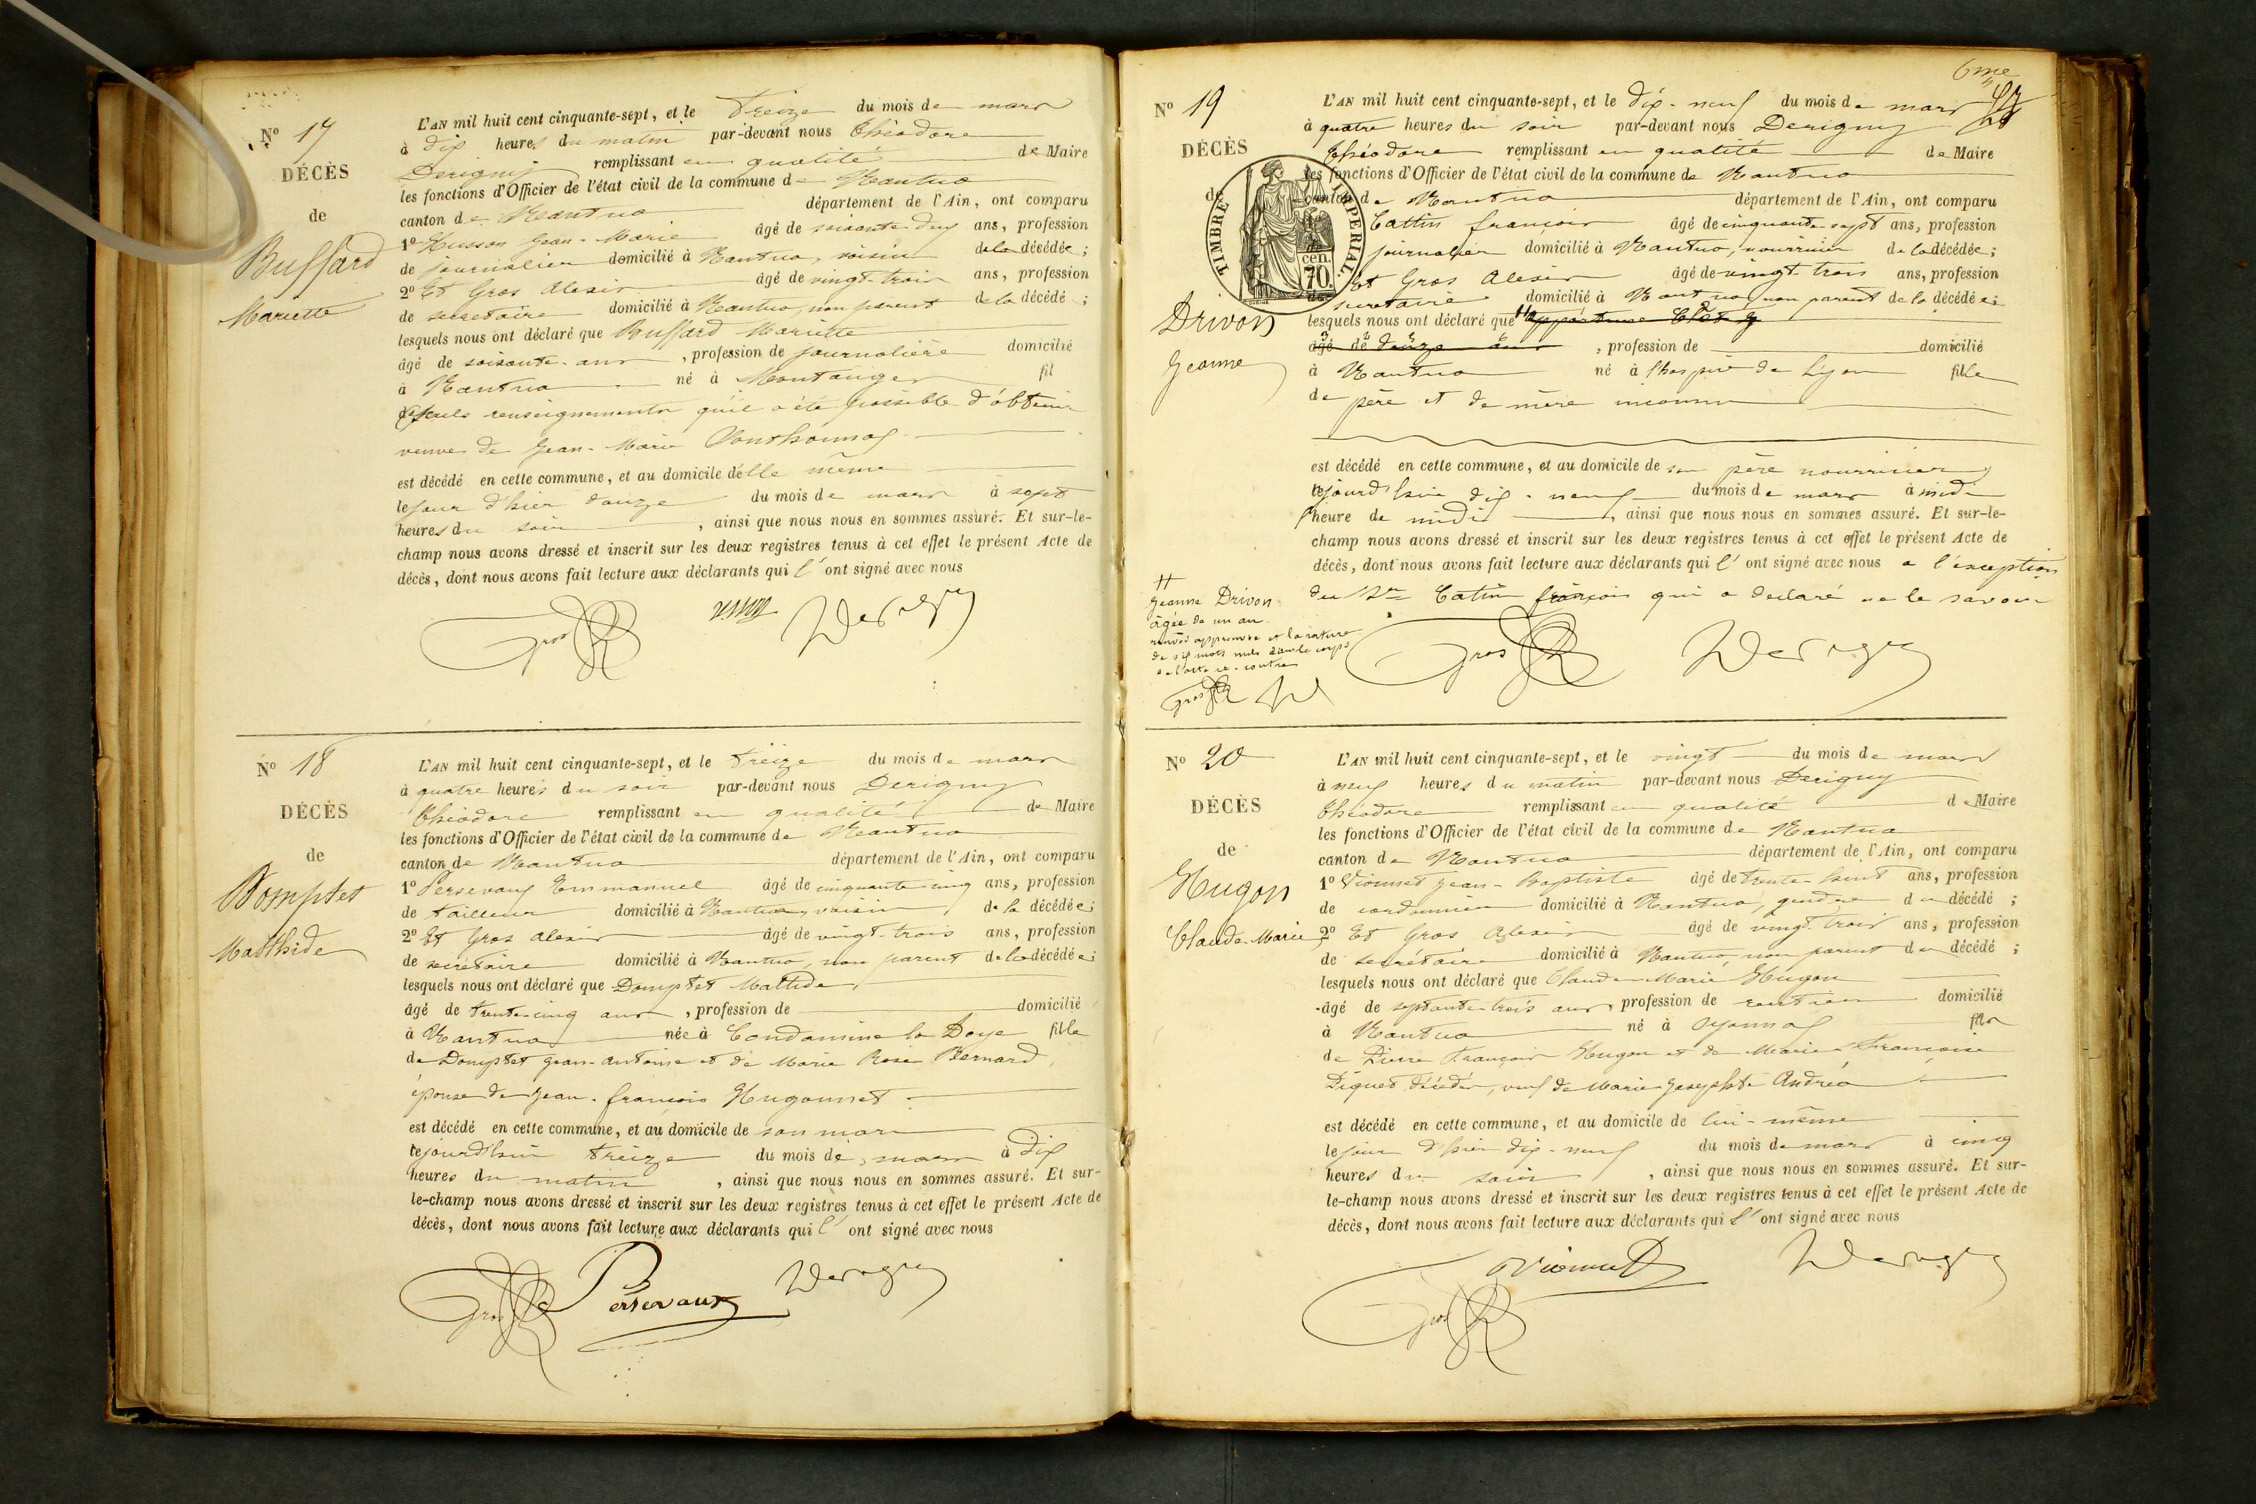 Nº 17
DÉCÈS
de
Buffard
Mariette
L'AN mil huit cent cinquante-sept, et le treize du mois de mars
à dix heures du matin par-devant nous Théodore
Derigny remplissant en qualité de Maire
les fonctions d'Officier de l'état civil de la commune de Nantua
canton de Nantua département de l'Ain, ont comparu
1º Husson Jean-Marie âgé de soixante-dix ans, profession
de journalier domicilié à Nantua, voisin de la décédée;
2º Et Gros Alexis âgé de vingt-trois ans, profession
de secrétaire domicilié à Nantua, non parent de la décédée;
lesquels nous ont déclaré que Buffard Mariette
âgé de soixante ans, profession de journalière domicilié
à Nantua né à Montanges fil
seuls renseignements qu'il a été possible d'obtenir
veuve de Jean-Marie
est décédé en cette commune, et au domicile d'elle même
le jour d'hier douze du mois de mars à sept
heures du soir, ainsi que nous nous en sommes assuré. Et sur-le-
champ nous avons dressé et inscrit sur les deux registres tenus à cet effet le présent Acte de
décès, dont nous avons fait lecture aux déclarants qui l' ont signé avec nous
Gros Derigny
Nº 18
DÉCÈS
de
Domptet
Matthide
L'AN mil huit cent cinquante-sept, et le treize du mois de mars
à quatre heures du soir par-devant nous Derigny
Théodore remplissant en qualité de Maire
les fonctions d'Officier de l'état civil de la commune de Nantua
canton de Nantua département de l'Ain, ont comparu
1º Persevaux Emmanuel âgé de cinquante-cinq ans, profession
de tailleur domicilié à Nantua, voisin de la décédée;
2º Et Gros Alexis âgé de vingt-trois ans, profession
de secrétaire domicilié à Nantua, non parent de la décédée;
lesquels nous ont déclaré que Domptet Mathilde
âgé de trente-cinq ans, profession de domicilié
à Nantua née à Condamine la Doye fille
de Domptet Jean-Antoine et de Marie Rose Bernard,
épouse de Jean-François Hugonnet
est décédé en cette commune, et au domicile de son mari
cejourd'hui treize du mois de mars à dix
heures du matin, ainsi que nous nous en sommes assuré. Et sur-
le-champ nous avons dressé et inscrit sur les deux registres tenus à cet effet le présent Acte de
décès, dont nous avons fait lecture aux déclarants qui l' ont signé avec nous
Gros Persevaux Derigny
6me
Nº 19
DÉCÈS
de
Drivon
Jeanne
TIMBRE IMPERIAL.
70 cen.
L'AN mil huit cent cinquante-sept, et le dix-neuf du mois de mars
à quatre heures du soir par-devant nous Derigny
Théodore remplissant en qualité de Maire
les fonctions d'Officier de l'état civil de la commune de Nantua
canton de Nantua département de l'Ain, ont comparu
Cattin françois âgé de cinquante-sept ans, profession
journalier domicilié à Nantua, nourricier de la décédée;
Et Gros Alexis âgé de vingt-trois ans, profession
secrétaire domicilié à Nantua, non parent de la décédée;
lesquels nous ont déclaré que
âgé de douze ans, profession de domicilié
à Nantua né à l'hospice de Lyon fille
de père et de mère inconnus
est décédé en cette commune, et au domicile de son père nourricier
cejourd'hui dix-neuf du mois de mars à
l'heure de midi, ainsi que nous nous en sommes assuré. Et sur-le-
champ nous avons dressé et inscrit sur les deux registres tenus à cet effet le présent Acte de
décès, dont nous avons fait lecture aux déclarants qui l' ont signé avec nous a l'exception
du Sr Catin françois qui a declaré ne le savoir
Jeanne Drivon
âgée de un an
renvoi approuvé et la rature
de six mots nuls dans le corps
de l'acte ci-contre
Gros
Gros Derigny
Nº 20
DÉCÈS
de
Hugon
Claude-Marie
L'AN mil huit cent cinquante-sept, et le vingt du mois de mars
à neuf heures du matin par-devant nous Derigny
Théodore remplissant en qualité de Maire
les fonctions d'Officier de l'état civil de la commune de Nantua
canton de Nantua département de l'Ain, ont comparu
1º Vionnet Jean-Baptiste âgé de trente-huit ans, profession
de cordonnier domicilié à Nantua, gendre du décédé;
2º Et Gros Alexis âgé de vingt-trois ans, profession
de secrétaire domicilié à Nantua, non parent du décédé;
lesquels nous ont déclaré que Claude-Marie Hugon
âgé de septante-trois ans, profession de rentier domicilié
à Nantua né à Oyonnax fils
de Pierre François Hugon et de Marie Françoise
Piquet décédés, veuf de Marie-Josephte Andréa
est décédé en cette commune, et au domicile de lui-même
le jour d'hier dix-neuf du mois de mars à cinq
heures du soir, ainsi que nous nous en sommes assuré. Et sur-
le-champ nous avons dressé et inscrit sur les deux registres tenus à cet effet le présent Acte de
décès, dont nous avons fait lecture aux déclarants qui l' ont signé avec nous
Vionnet Derigny
Gros